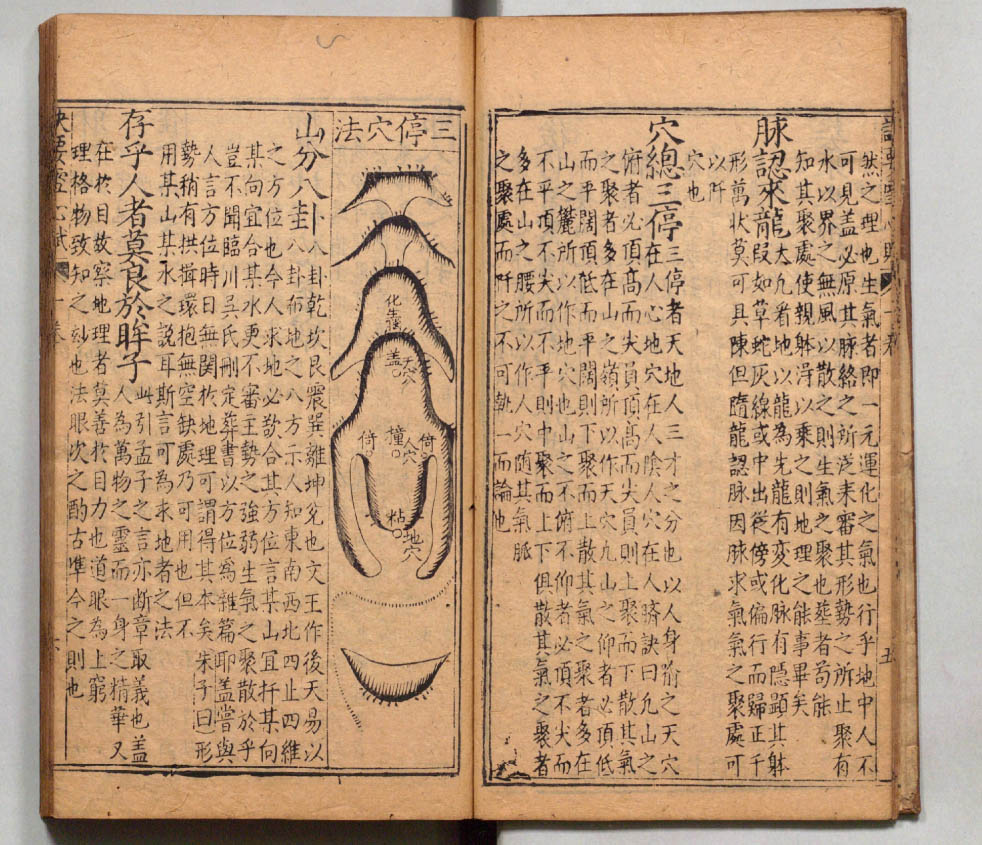 然之理也生氣者即一元運化之氣也行乎地中人不
可見盖必原其脉絡之所從来審其形勢之所止聚有
水以界之無風以散之則生氣之聚也塟者苟能
知其聚處使親躰淂以乘之則地理之能事畢矣
脉認来龍
大凢看地以龍為先龍有變化脉有隱顕其躰
叚如草蛇灰線或中出從傍或偏行而歸正千
形萬状莫可具陳但隨龍認脉因脉求氣氣之聚處可
以阡
穴也
穴總三停
三停者天地人三才之分也以人身喻之天穴
在人心地穴在人陰人穴在人臍訣曰凢山之
俯者必頂髙而尖員頂髙而尖員則上聚而下散其氣
之聚者多在山之嶺所以作天穴凢山之仰者必頂低
而平闊頂低而平闊則下聚而上散其氣之聚者多在
山之麓所以作地穴也山之不俯不仰者必頂不尖而
不平頂不尖而不平則中聚而上下俱散其氣之聚者
多在山之腰所以作人穴随其氣脉
之聚處而阡之不可執一而論也
三停穴法
化生腦
天穴
盖
撞
人穴
倚
倚
粘
地穴
山分八卦
八卦乾坎艮震巽離坤兌也文王作後天易以
八卦布地之八方示人知東南西北四止四維
之方位也今人求地必欲合其方位言某山冝扦某向
其向宜合某水更不審王勢之強弱生氣之聚散於乎
豈不聞臨川吳氏刪定葬書以方位爲雜篇耶盖嘗與
人言方位時日無関於地理可謂得其本矣朱子曰形
勢稍有拱揖環抱無空缺處乃可用也但不
用某山某水之説耳斯言可為求地者之法
存乎人者莫良於眸子
此引孟子之言亦断章取義也盖
人為萬物之靈而一身之精華又
在於目故察地理者莫善於目力也道眼為上窮
理格物致知之妙也法眼次之酌古凖今之則也